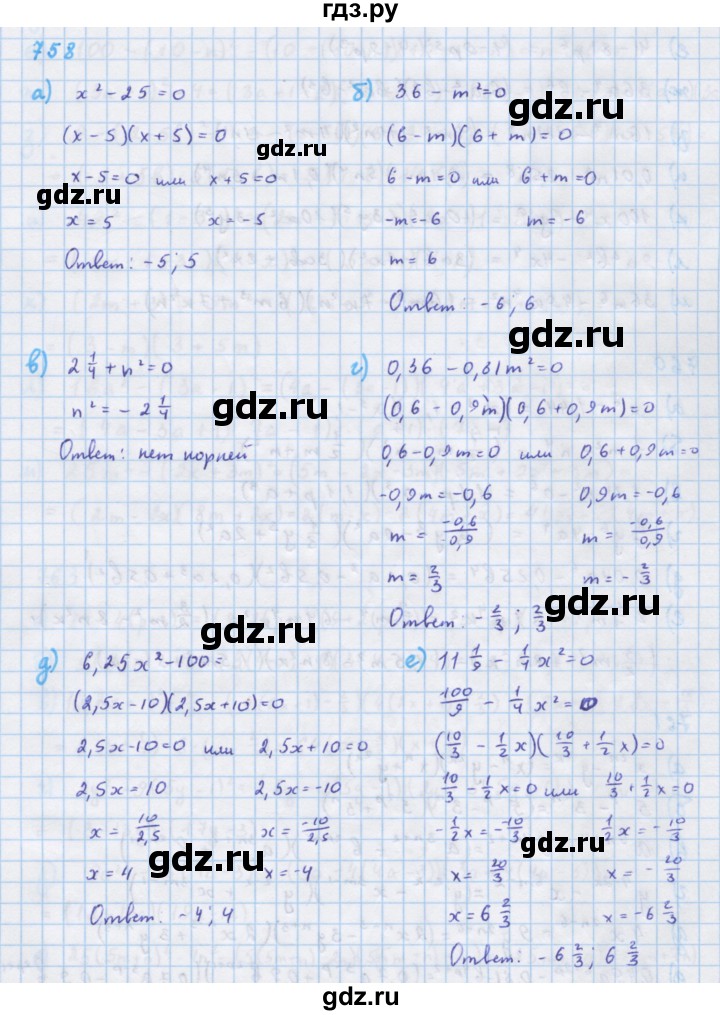 гдз.ру
758
а) x² - 25 = 0
(x - 5)(x + 5) = 0
x - 5 = 0 или x + 5 = 0
x = 5 x = - 5
Ответ: - 5; 5
б) 36 - m² = 0
(6 - m)(6 + m) = 0
6 - m = 0 или 6 + m = 0
-m = -6 m = - 6
m = 6
Ответ: - 6; 6
в) 2 1/4 + n² = 0
n² = - 2 1/4
Ответ: нет корней
г) 0,36 - 0,81m² = 0
(0,6 - 0,9m)(0,6 + 0,9m) = 0
0,6 - 0,9m = 0 или 0,6 + 0,9m = 0
-0,9m = -0,6 0,9m = -0,6
m = -0,6/-0,9 m = -0,6/0,9
m = 2/3 m = - 2/3
Ответ: - 2/3; 2/3
д) 6,25x² - 100 =
(2,5x - 10)(2,5x + 10) = 0
2,5x - 10 = 0 или 2,5x + 10 = 0
2,5x = 10 2,5x = -10
x = 10/2,5 x = -10/2,5
x = 4 x = -4
Ответ. - 4; 4
е) 11 1/9 - 1/4 x² = 0
100/9 - 1/4 x² = 0
(10/3 - 1/2 x)(10/3 + 1/2 x) = 0
10/3 - 1/2 x = 0 или 10/3 + 1/2 x = 0
- 1/2 x = -10/3 1/2 x = - 10/3
x = 20/3 x = - 20/3
x = 6 2/3 x = -6 2/3
Ответ: - 6 2/3; 6 2/3
gdz.ru
gdz.ru
gdz.ru
gdz.ru
gdz.ru
gdz.ru
gdz.ru
gdz.ru
gdz.ru
gdz.ru
gdz.ru